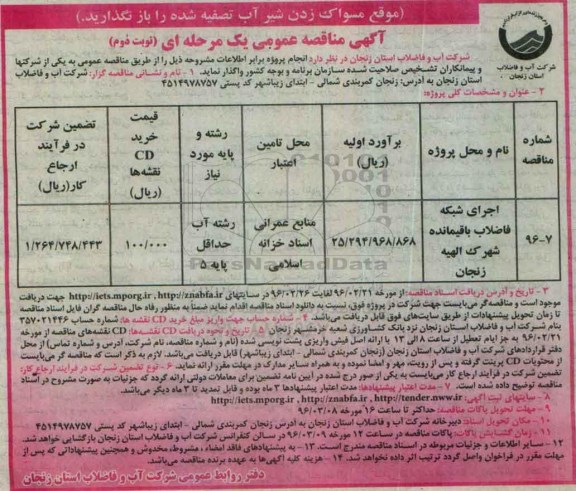 (موقع مسواک زدن شیر آب تصفیه شده را باز نگذارید.)
آگهی مناقصه عمومی یک مرحله ای (نوبت دوم)
شرکت آب و فاضلاب
استان زنجان
شرکت آب و فاضلاب استان زنجان در نظر دارد انجام پروژه برابر اطلاعات مشروحه ذیل را از طریق مناقصه عمومی به یکی از شرکتها
و پیمانکاران تشخیص صلاحیت شده سازمان برنامه و بودجه کشور واگذار نماید. ۱- نام و نشانی مناقصه گزار: شرکت آب و فاضلاب
استان زنجان به آدرس: زنجان کمربندی شمالی - ابتدای زیباشهر کد پستی ۴۵۱۴۹۷۸۷۵۷
۲- عنوان و مشخصات کلی پروژه:
شماره مناقصه
نام و محل پروژه
برآورد اولیه (ریال)
محل تامین اعتبار
رشته و پایه مورد نیاز
قیمت خرید CD نقشه‌ها (ریال)
تضمین شرکت در فرآیند ارجاع کار(ریال)
۹۶-۷
اجرای شبکه فاضلاب باقیمانده شهرک الهیه زنجان
۲۵/۲۹۴/۹۶۸/۸۶۸
منابع عمرانی اسناد خزانه اسلامی
رشته آب حداقل پایه ۵
۱۰۰/۰۰۰
۱/۲۶۴/۷۴۸/۴۴۳
ParsNamadData
۳- تاریخ و آدرس دریافت اسناد مناقصه: از مورخه ۹۶/۰۲/۲۱ لغایت ۹۶/۰۲/۲۶ در سایتهای http://iets.mporg.ir , http://znabfa.ir جهت دریافت
موجود است و مناقصه گر می‌بایست جهت شرکت در پروژه فوق، نسبت به دانلود اسناد مناقصه اقدام نماید ضمنا به منظور رفاه حال مناقصه گران فایل اسناد مناقصه
تا زمان تحویل پیشنهادات از طریق سایت‌های فوق قابل دریافت می‌باشد. ۴- شماره حساب جهت واریز مبلغ خرید CD نقشه ها: شماره حساب ۳۵۷۰۲۱۴۴۶
بنام شرکت آب و فاضلاب استان زنجان نزد بانک کشاورزی شعبه خرمشهر زنجان ۵- تاریخ و نحوه دریافت CD نقشه‌ها: CD نقشه‌های مناقصه از مورخه
۹۶/۰۲/۲۱ به جز ایام تعطیل از ساعت ۸ الی ۱۳ با ارائه اصل فیش واریزی پشت نویسی شده (نام و شماره مناقصه، نام شرکت، آدرس و شماره تماس) از محل
دفتر قراردادهای شرکت آب و فاضلاب استان زنجان (زنجان کمربندی شمالی - ابتدای زیباشهر) قابل دریافت می‌باشد. لازم به ذکر است که مناقصه گر می‌بایست
از محتویات CD پرینت گرفته و پس از رویت، مهر و امضا نموده و به همراه سایر مدارک در مهلت مقرر ارائه نماید. ۶- نوع تضمین شرکت در فرایند ارجاع کار:
تضمین شرکت در فرآیند ارجاع کار می‌بایست به یکی از صور درج شده در آیین نامه تضمین برای معاملات دولتی ارائه گردد که جزئیات به صورت مشروح در اسناد
مناقصه توضیح داده شده است. ۷- مدت اعتبار پیشنهادها: مدت اعتبار پیشنهادها ۳ ماه بوده و قابل تمدید تا ۳ ماه دیگر می‌باشد.
۸- سایتهای ثبت آگهی: http://iets.mporg.ir , http://znabfa.ir , http://tender.nww.ir
۹- مهلت تحویل پاکات مناقصه: حداکثر تا ساعت ۱۶ مورخه ۹۶/۰۳/۰۸
۱۰- مکان تحویل اسناد: دبیرخانه شرکت آب و فاضلاب استان زنجان به آدرس زنجان کمربندی شمالی - ابتدای زیباشهر کد پستی ۴۵۱۴۹۷۸۷۵۷
۱۱- زمان گشایش پاکات: پاکات مناقصه در ساعت ۱۲ مورخه ۹۶/۰۳/۰۹ در سالن کنفرانس شرکت آب و فاضلاب استان زنجان بازگشایی خواهد شد.
۱۲- سایر اطلاعات و جزئیات مربوطه در اسناد مناقصه مندرج است. ۱۳- به پیشنهادهای فاقد امضاء، مشروط، مخدوش و همچنین پیشنهاداتی که پس از
مهلت مقرر در فراخوان واصل گردد ترتیب اثر داده نخواهد شد. ۱۴- هزینه کلیه آگهی‌ها به عهده برنده مناقصه می‌باشد.
دفتر روابط عمومی شرکت آب و فاضلاب استان زنجان